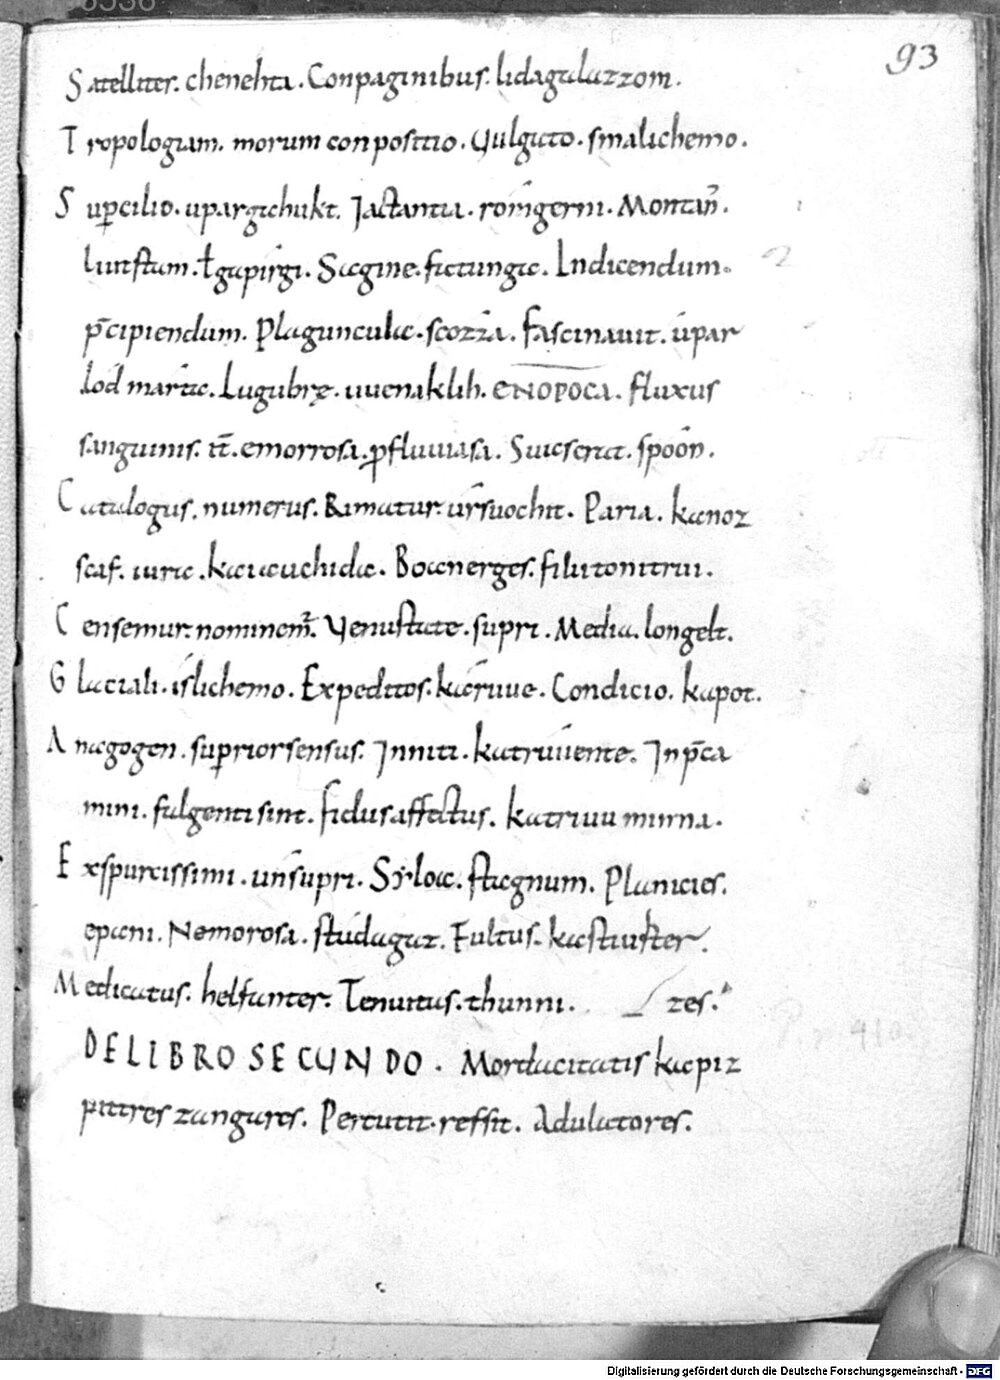 93
Satellites. chenehta. Conpaginibus. lidagalazzom.
Tropologiam. morum conpositio. Vulgato. smalichemo.
Sup̄cilio. upargichukt. Jactantia. romigerni. Montan̄.
lunstam. ł gapirgi. Sagine. fictungae. Indicendum.
p̄cipiendum. Plagunculae. scozza. Fascinauit. upar
lod martae. Lugubrę. uuenaklih. ENOPOCA. fluxus
sanguinis. it̄. emorrosa. p̄fluuiasa. Suaeserat. spoon.
Catalogus. numerus. Rimatur. ursuochit. Paria. kanoz
scaf. iurae. kauuachidae. Boanerges. filii tonitrui.
Censemur. nominem̄. Venustate. supri. Media. longelt.
Glaciali. islichemo. Expeditos. kaeruue. Condicio. kapot.
Anagogen. sup̄rior sensus. Inniti. katruuente. Inp̄ca
mini. fulgenti sint. fidus affectus. katriuu minna.
Exspurcissimi. unsupri. Syloae. stagnum. Planicies.
epani. Nemorosa. studagaz. Fultus. kastiufter.
Medicatus. helfanter. Tenuitus. thunni. zes.
DE LIBRO SECUNDO. Mordacitatis kaepiz
pittres zangares. Percutit. reffit. Adulatores.
Digitalisierung gefördert durch die Deutsche Forschungsgemeinschaft - DFG